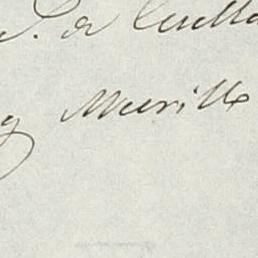 S. de Cuella
y Murillo